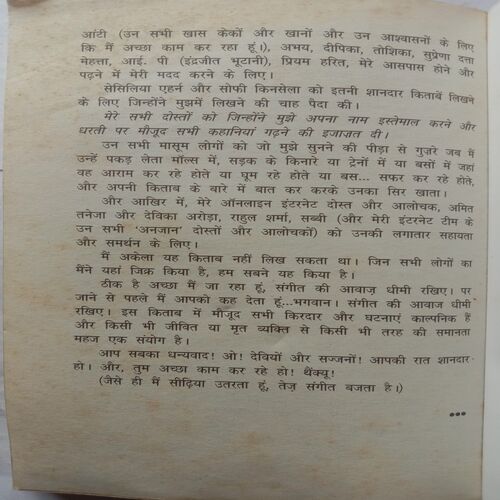 आंटी (उन सभी खास केकों और खानों और उन आश्वासनों के लिए
कि मैं अच्छा काम कर रहा हूं।), अभय, दीपिका, तोशिका, सुप्रेणा दत्ता
मेहत्ता, आई. पी (इंद्रजीत भूटानी), प्रियम हरित, मेरे आसपास होने और
पढ़ने में मेरी मदद करने के लिए।
सेसिलिया एहर्न और सोफी किनसेला को इतनी शानदार किताबें लिखने
के लिए जिन्होंने मुझमें लिखने की चाह पैदा की।
मेरे सभी दोस्तों को जिन्होंने मुझे अपना नाम इस्तेमाल करने और
धरती पर मौजूद सभी कहानियां गढ़ने की इजाज़त दी।
उन सभी मासूम लोगों को जो मुझे सुनने की पीड़ा से गुज़रे जब मैं
उन्हें पकड़ लेता मॉल्स में, सड़क के किनारे या ट्रेनों में या बसों में जहां
वह आराम कर रहे होते या घूम रहे होते या बस... सफर कर रहे होते,
और अपनी किताब के बारे में बात कर करके उनका सिर खाता।
और आखिर में, मेरे ऑनलाइन इंटरनेट दोस्त और आलोचक, अमित
तनेजा और देविका अरोड़ा, राहुल शर्मा, सब्बी (और मेरी इंटरनेट टीम के
उन सभी 'अनजान' दोस्तों और आलोचकों) को उनकी लगातार सहायता
और समर्थन के लिए।
मैं अकेला यह किताब नहीं लिख सकता था। जिन सभी लोगों का
मैंने यहां जिक्र किया है, हम सबने यह किया है।
ठीक है अच्छा मैं जा रहा हूं, संगीत की आवाज़ धीमी रखिए। पर
जाने से पहले मैं आपको कह देता हूं...भगवान। संगीत की आवाज धीमी
रखिए। इस किताब में मौजूद सभी किरदार और घटनाएं काल्पनिक हैं
और किसी भी जीवित या मृत व्यक्ति से किसी भी तरह की समानता
महज एक संयोग है।
आप सबका धन्यवाद! ओ! देवियों और सज्जनों! आपकी रात शानदार
हो। और, तुम अच्छा काम कर रहे हो! थैंक्यू!
(जैसे ही मैं सीढ़िया उतरता हूं, तेज़ संगीत बजता है।)
•••